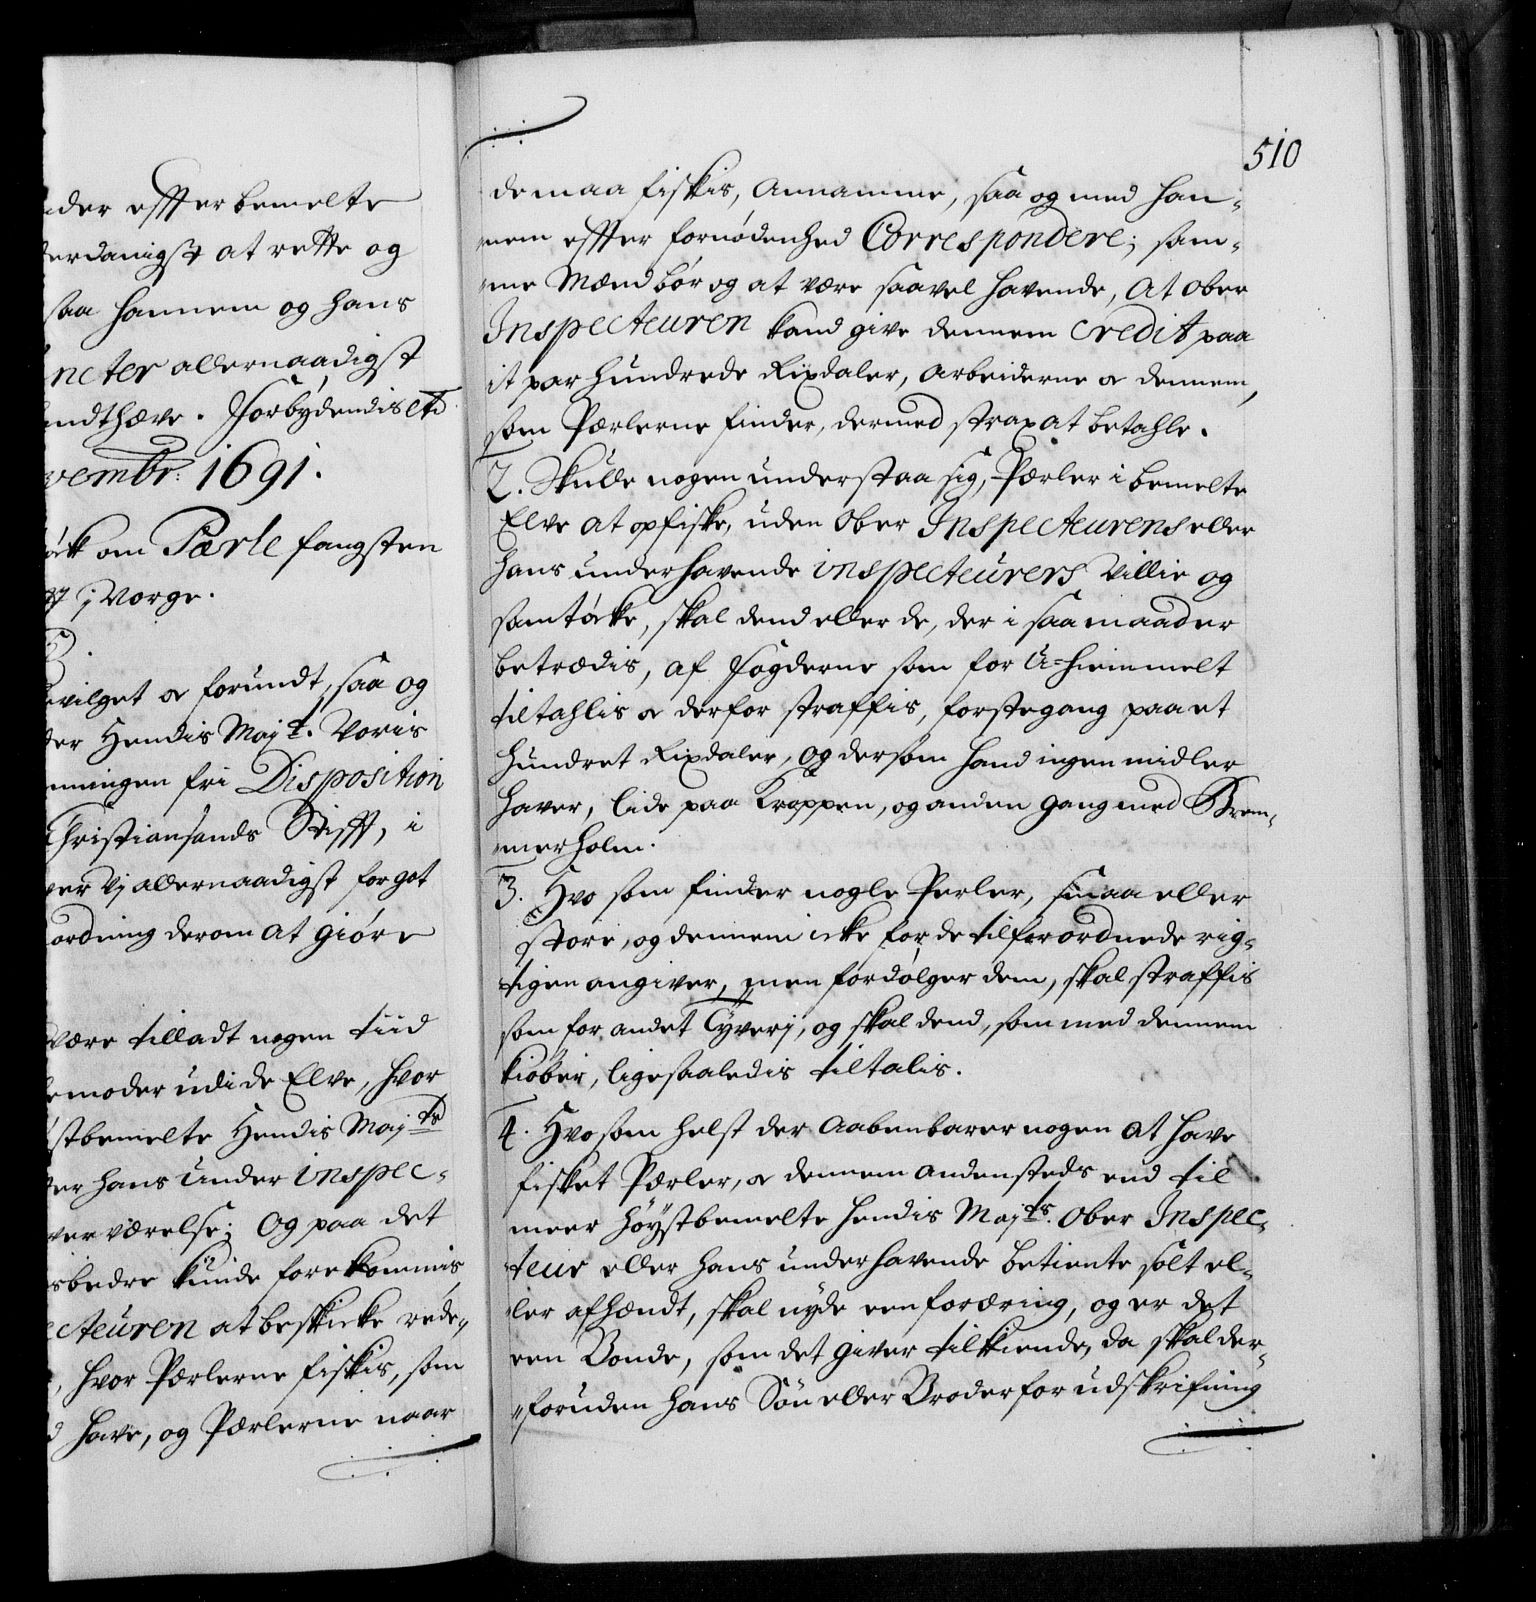 ider effterbemelte
derdanigst at rette og
saa hannem og hans
ncter allernaadigst
andthæve. Forbydendis etc
vembr: 1691.
om Pærle fangsten
i Norge.
evilget & forundt, saa og
der Hendis Mayt. Voris
nningen fri Disposition
Christiansands Stifft, i
ver Vj allernaadigst for got
ordning derom at giøre
være tilladt nogen tiid
emoder udi de Elve, hvor
stbemelte Hendis Mayts
der hans Under inspec-
verværelse; Og paa det
sbedre kunde forekommis
cteuren at beskicke rede-
, hvor Pærlerne fiskis, som
d have, og Pærlerne naar
510
de maa fiskis, annamme, saa og med han-
nem effter fornødenhed Correspondere; sam-
me Mænd bør og at være saavel havende, At Ober
Inspecteuren kand give dennem Credit paa
it par hundrede Rixdaler, Arbeiderne & dennem,
som Pærlerne finder, dermed strax at betahle.
2. Skulle nogen understaa sig, Pærler i bemelte
Elve at opfiske, uden Ober Inspecteurens eller
hans underhavende inspecteurers Villie og
samtøcke, skal dend eller de, der i saa maader
betrædis, af Fogderne som for U-hiemmelt
tiltahlis & derfor straffis, førstegang paa et
hundret Rixdaler, og dersom hand ingen midler
haver, lide paa Kroppen, og anden gang med Brem-
merholm.
3. Hvo som finder nogle Perler, smaa eller
store, og dennem icke for de tilforordnede rig-
tigen angiver, men fordølger dem, skal straffis
som for andet Tyverj, og skal dend, som med dennem
kiøber, ligesaaledis tiltalis.
4. Hvo som helst der Aabenbarer nogen at have
fisket Pærler, & dennem andensteds end til
meer høystbemelte hendis Mayts. Ober Inspec-
teur eller hans underhavende betiente sølt el-
ler afhændt, skal nyde een foræring, og er det
een Bonde, som det giver tilkiende, da skal der-
foruden hans Søn eller Broder for udskrifning